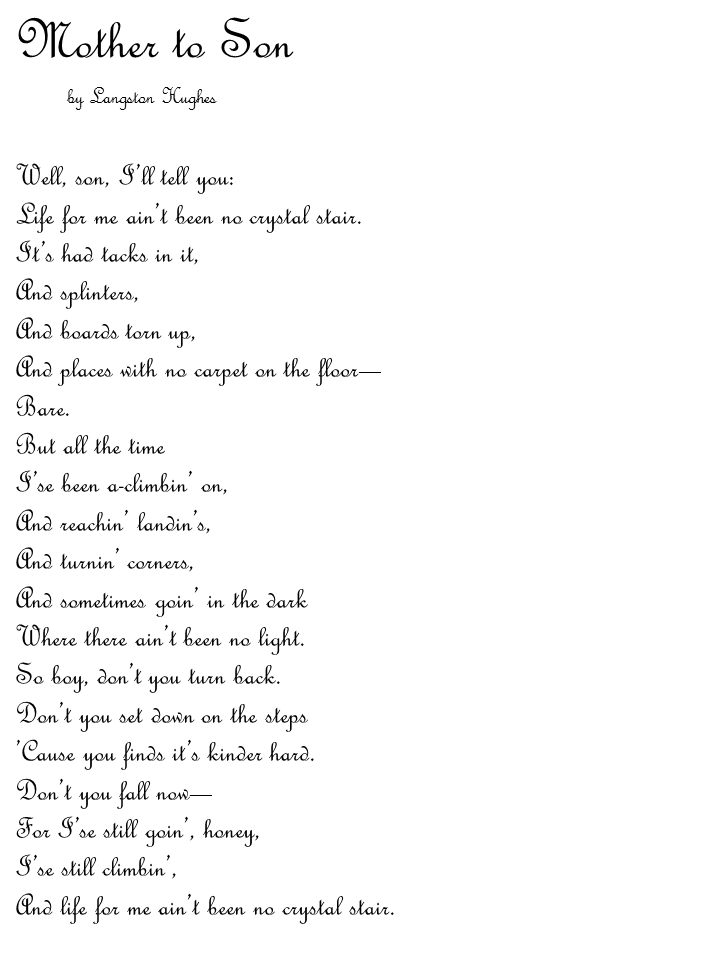 Mother to Son
by Langston Hughes
Well, son, I'll tell you:
Life for me ain't been no crystal stair.
It's had tacks in it,
And splinters,
And boards torn up,
And places with no carpet on the floor—
Bare.
But all the time
I'se been a-climbin' on,
And reachin' landin's,
And turnin' corners,
And sometimes goin' in the dark
Where there ain't been no light.
So boy, don't you turn back.
Don't you set down on the steps
'Cause you finds it's kinder hard.
Don't you fall now—
For I'se still goin', honey,
I'se still climbin',
And life for me ain't been no crystal stair.